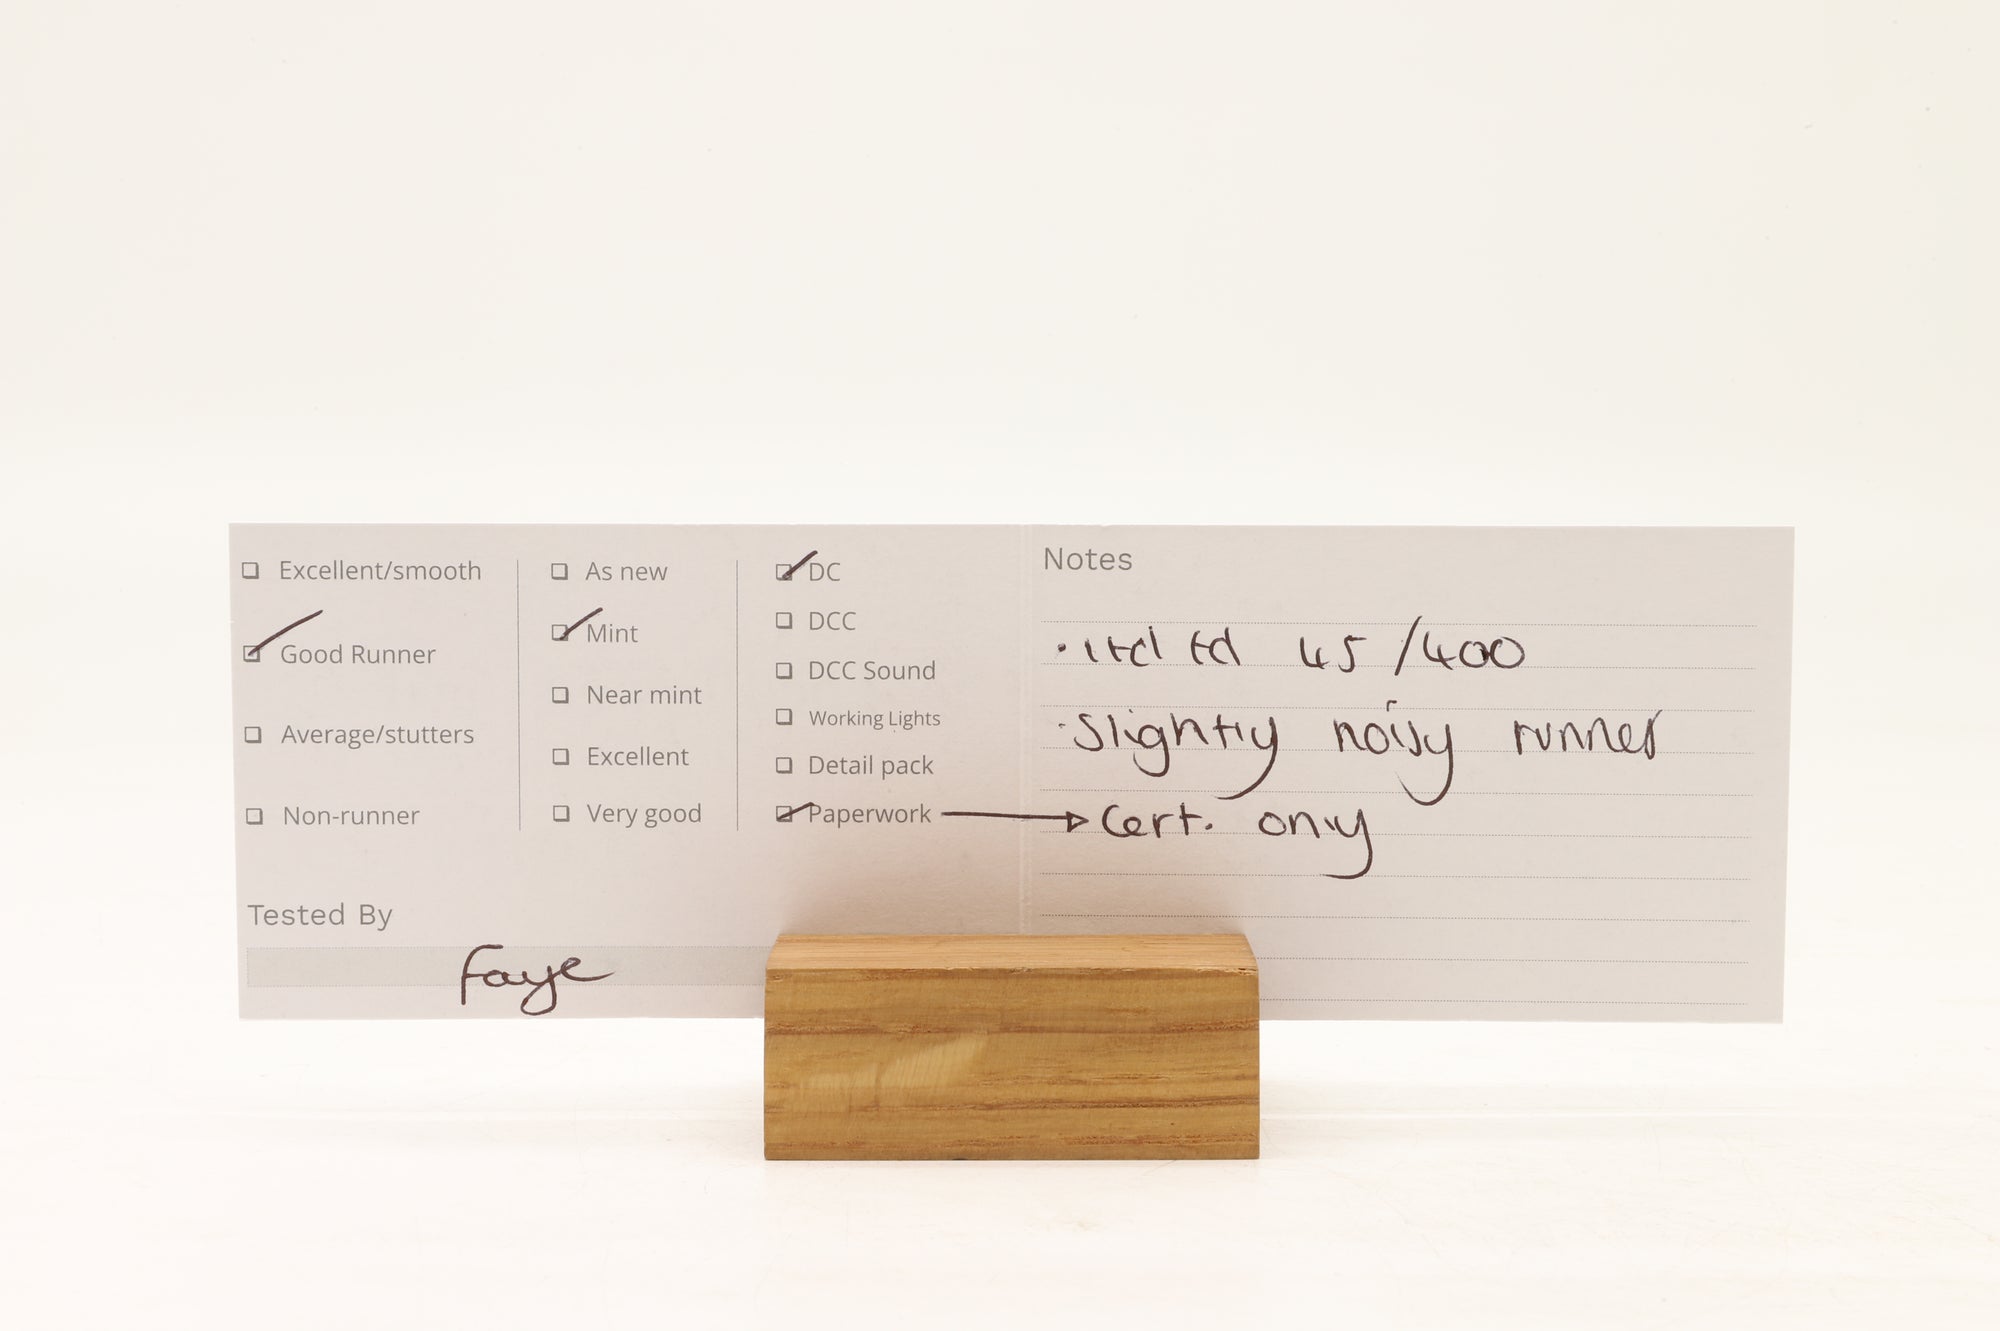 Excellent/smooth
Good Runner
Average/stutters
Non-runner
As new
Mint
Near mint
Excellent
Very good
DC
DCC
DCC Sound
Working Lights
Detail pack
Paperwork
Tested By
Faye
Notes
· ltd ed 45/400
· Slightly noisy runner
Cert. only